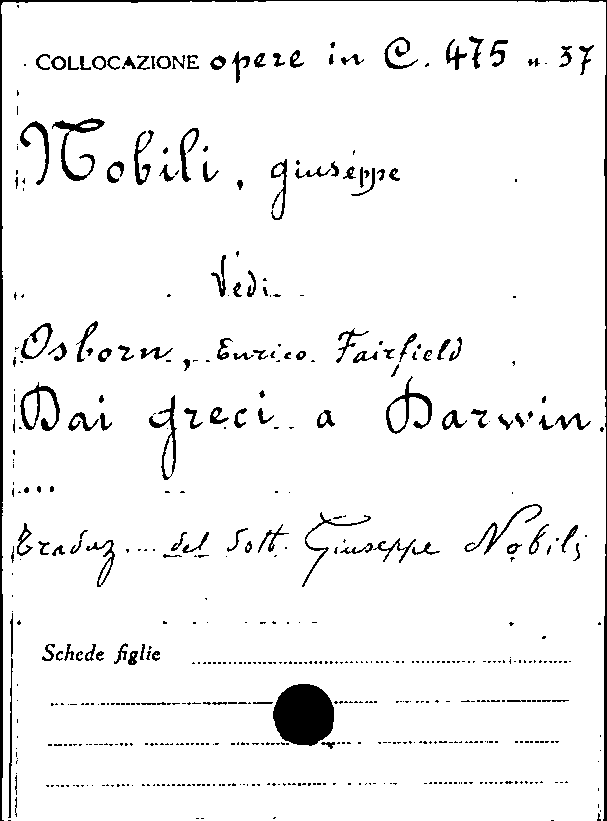 COLLOCAZIONE opere in C. 475 n. 37
Nobili, Giuseppe
Vedi
Osborn, Enrico Fairfield
Dai greci a Darwin.
...
Traduz.... del Dott. Giuseppe Nobili
Schede figlie